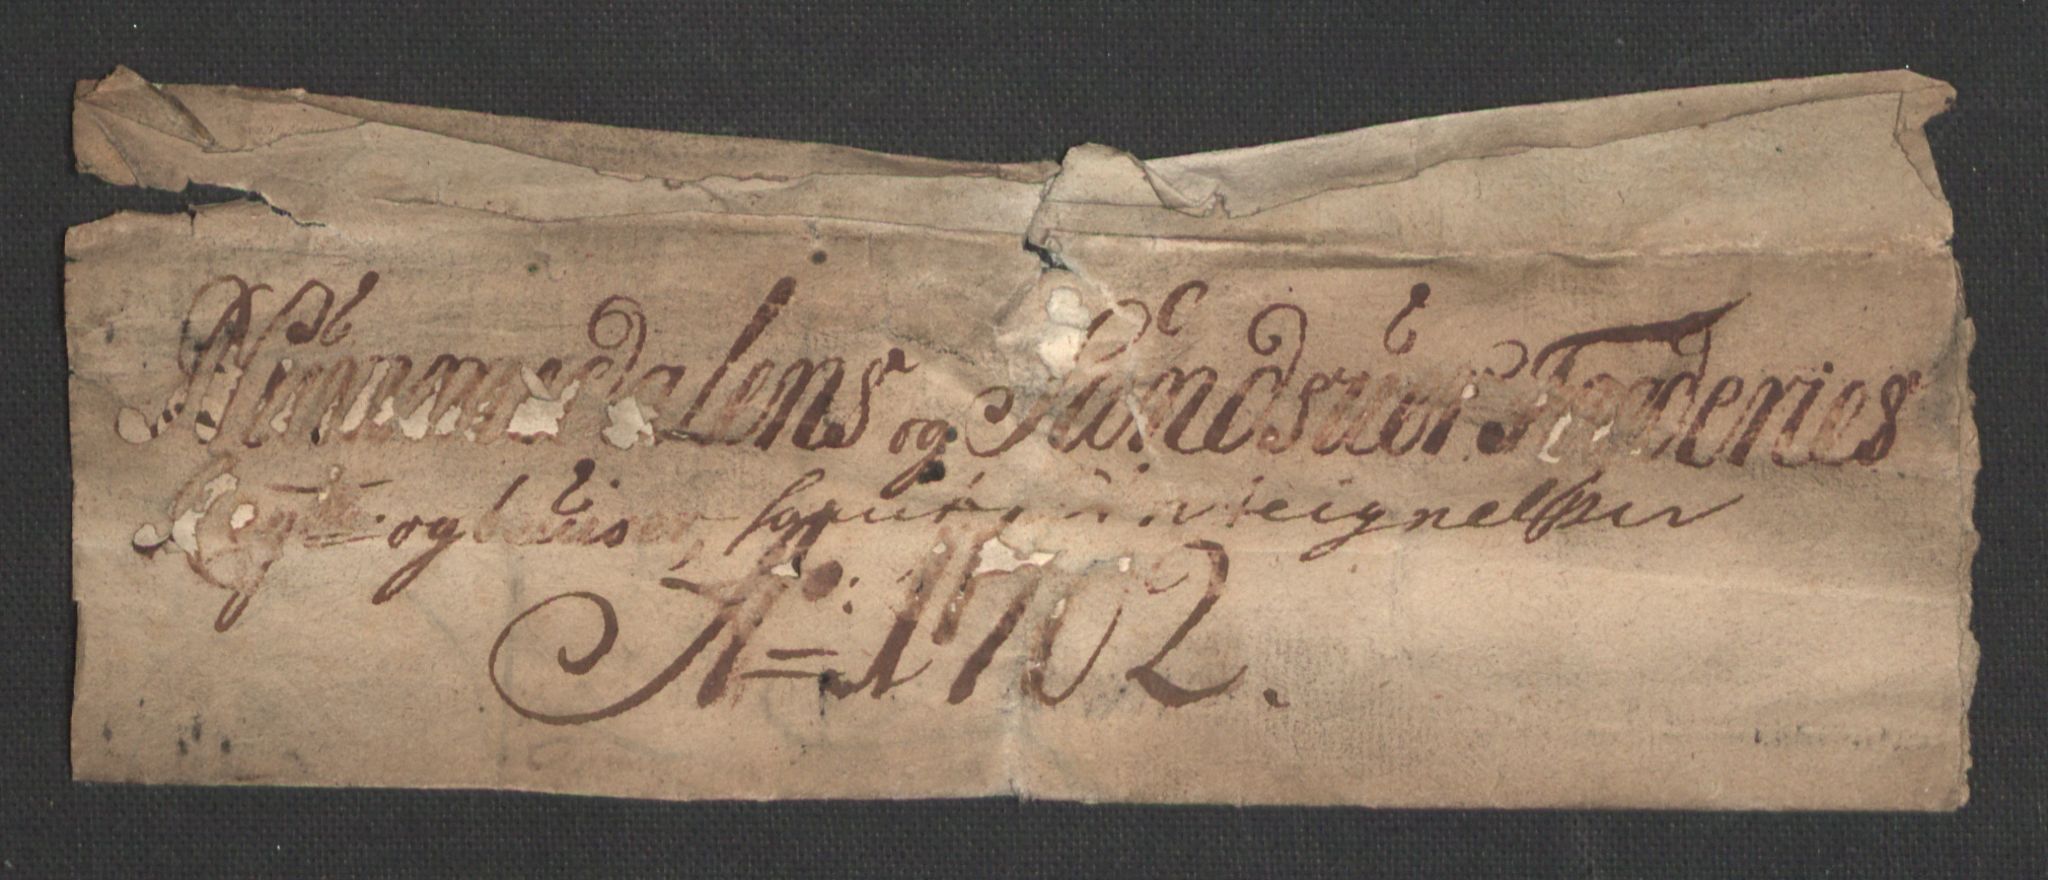 Nummedalens og Sandsuer Fogderies
Regnsk: og beuiser, forud: anteignelsser
Ao: 1702.